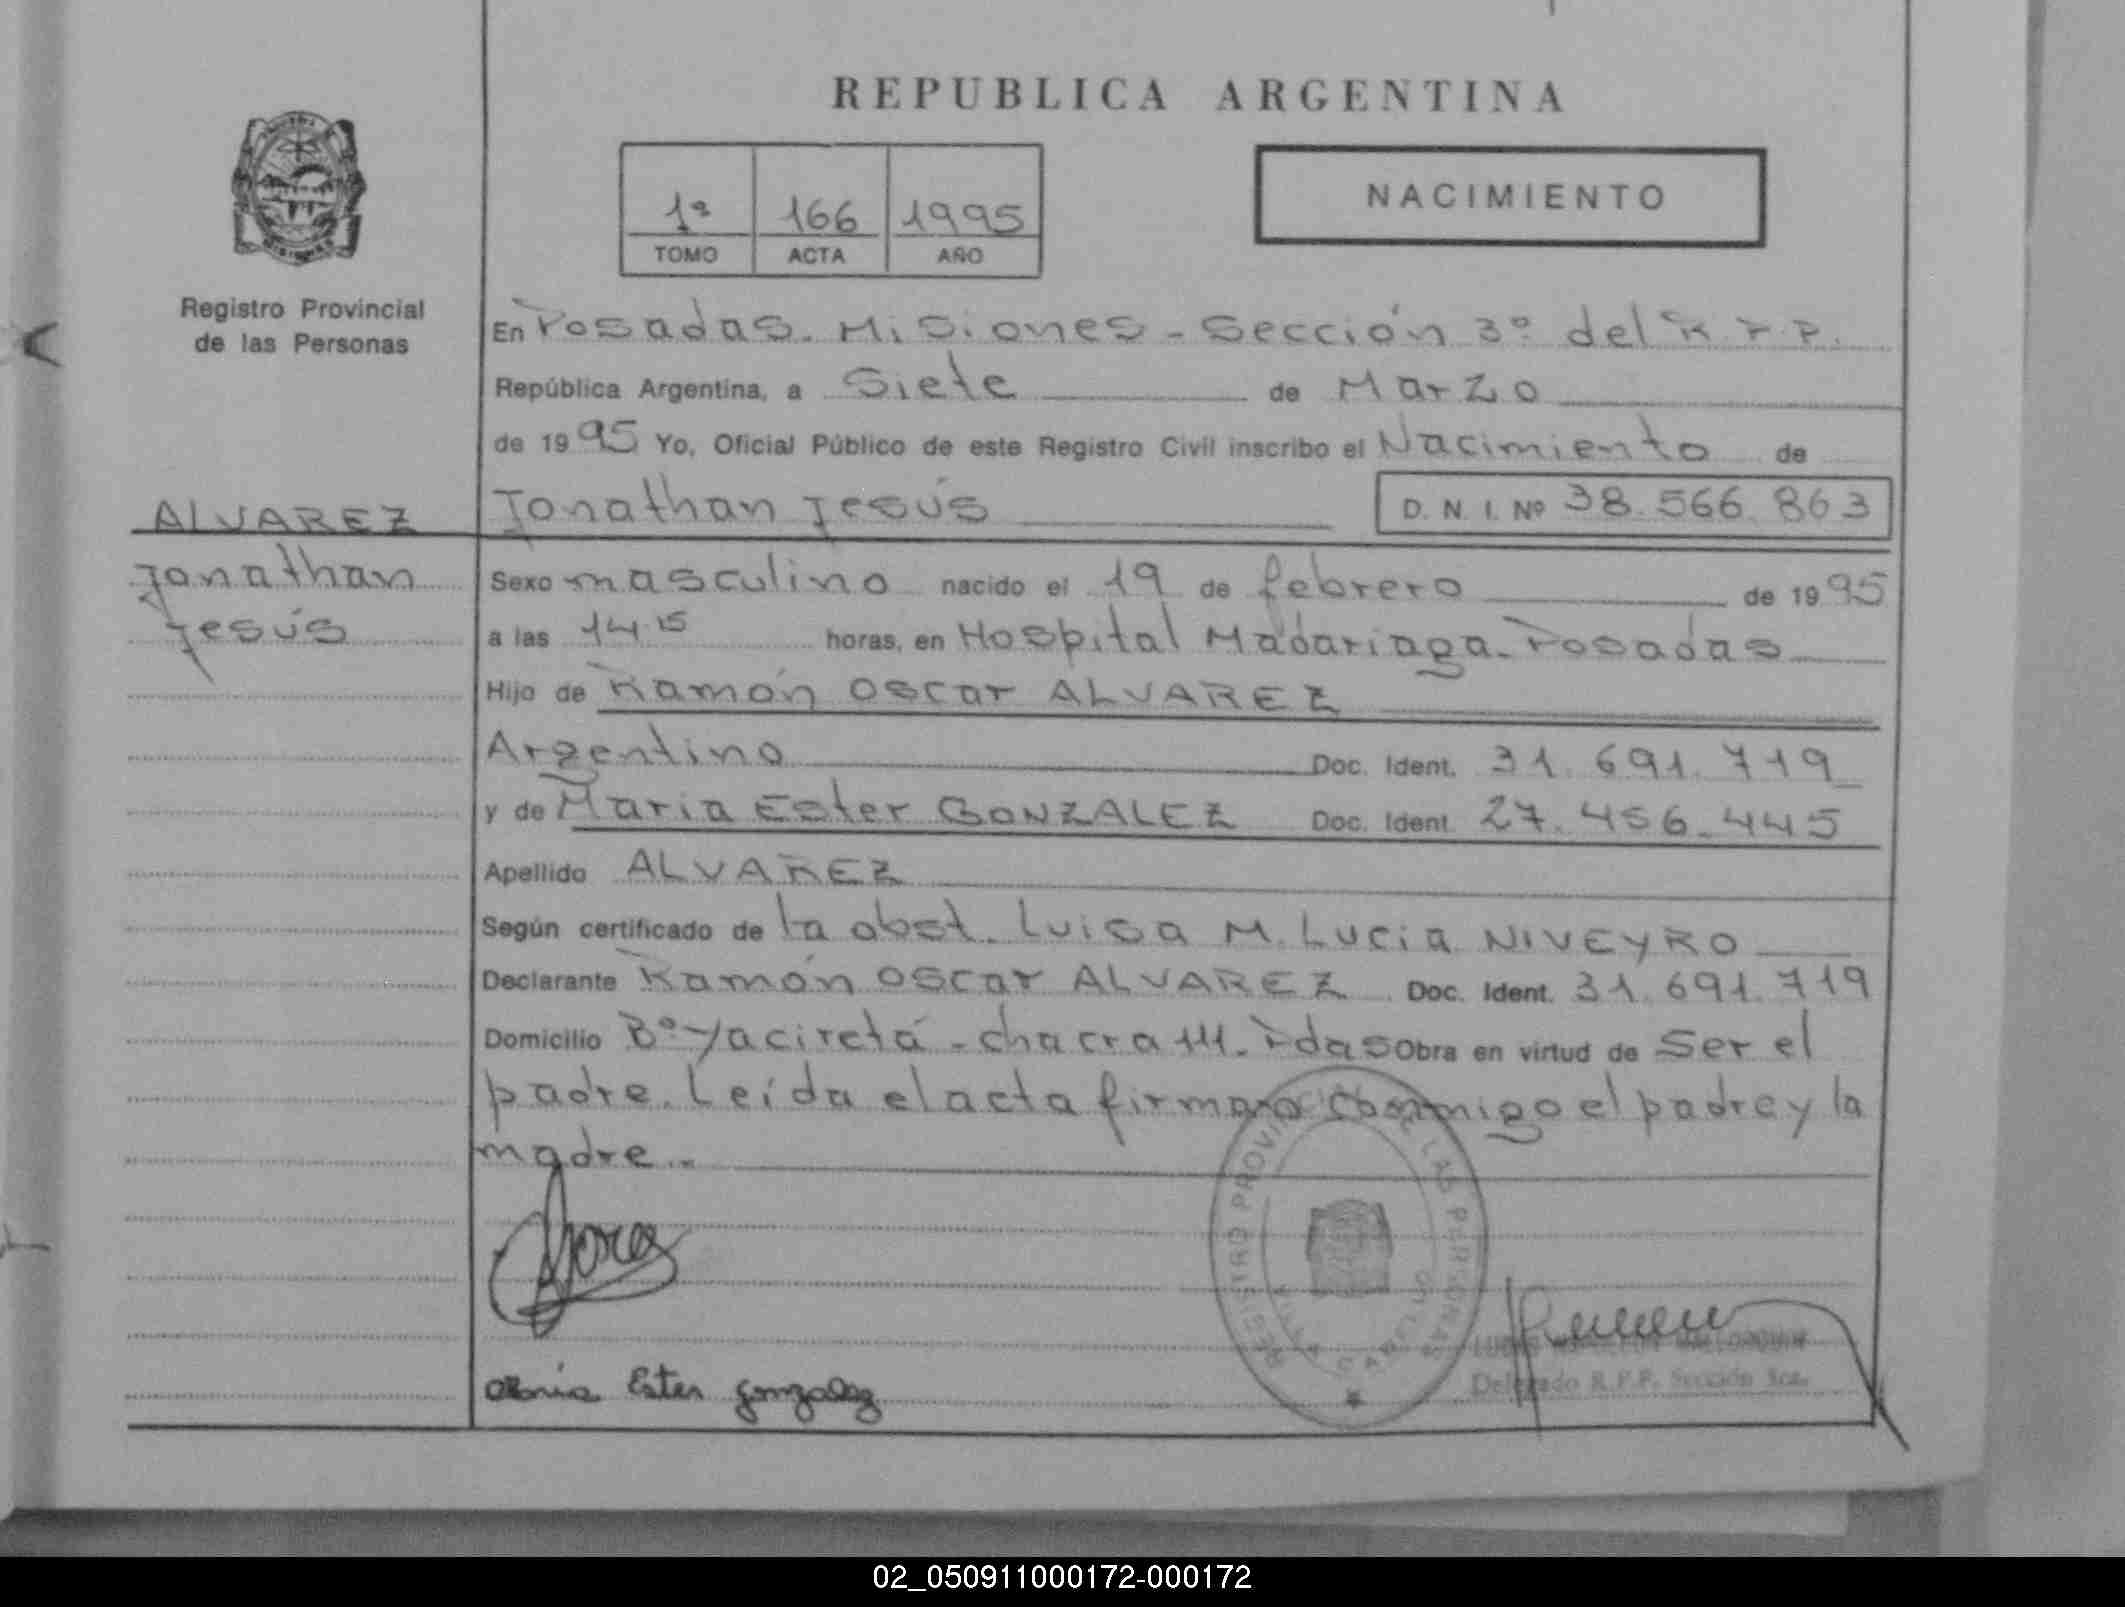 REPUBLICA ARGENTINA
1ª 166 1995
TOMO ACTA AÑO
NACIMIENTO
Registro Provincial
de las Personas
En Posadas. Misiones - Sección 3º del R.P.P.
República Argentina, a Siete de Marzo
de 1995 Yo, Oficial Público de este Registro Civil inscribo el Nacimiento de
ALVAREZ
Jonathan
Jesús
Jonathan Jesús D. N. I. Nº 38.566.863
Sexo masculino nacido el 19 de febrero de 1995
a las 14.15 horas, en Hospital Madariaga. Posadas
Hijo de Ramón Oscar ALVAREZ
Argentino Doc. Ident. 31.691.719
y de Maria Ester GONZALEZ Doc. Ident. 27.456.445
Apellido ALVAREZ
Según certificado de la obst. Luisa M. Lucia NIVEYRO
Declarante Ramón Oscar ALVAREZ Doc. Ident. 31.691.719
Domicilio Bº Yaciretá - chacra 111. Pdas Obra en virtud de Ser el
padre. Leída el acta firman conmigo el padre y la
madre.-
REGISTRO PROVINCIAL DE LAS PERSONAS
Maria Ester Gonzalez
Delegado R.P.P. Sección 3ra.
02_050911000172-000172